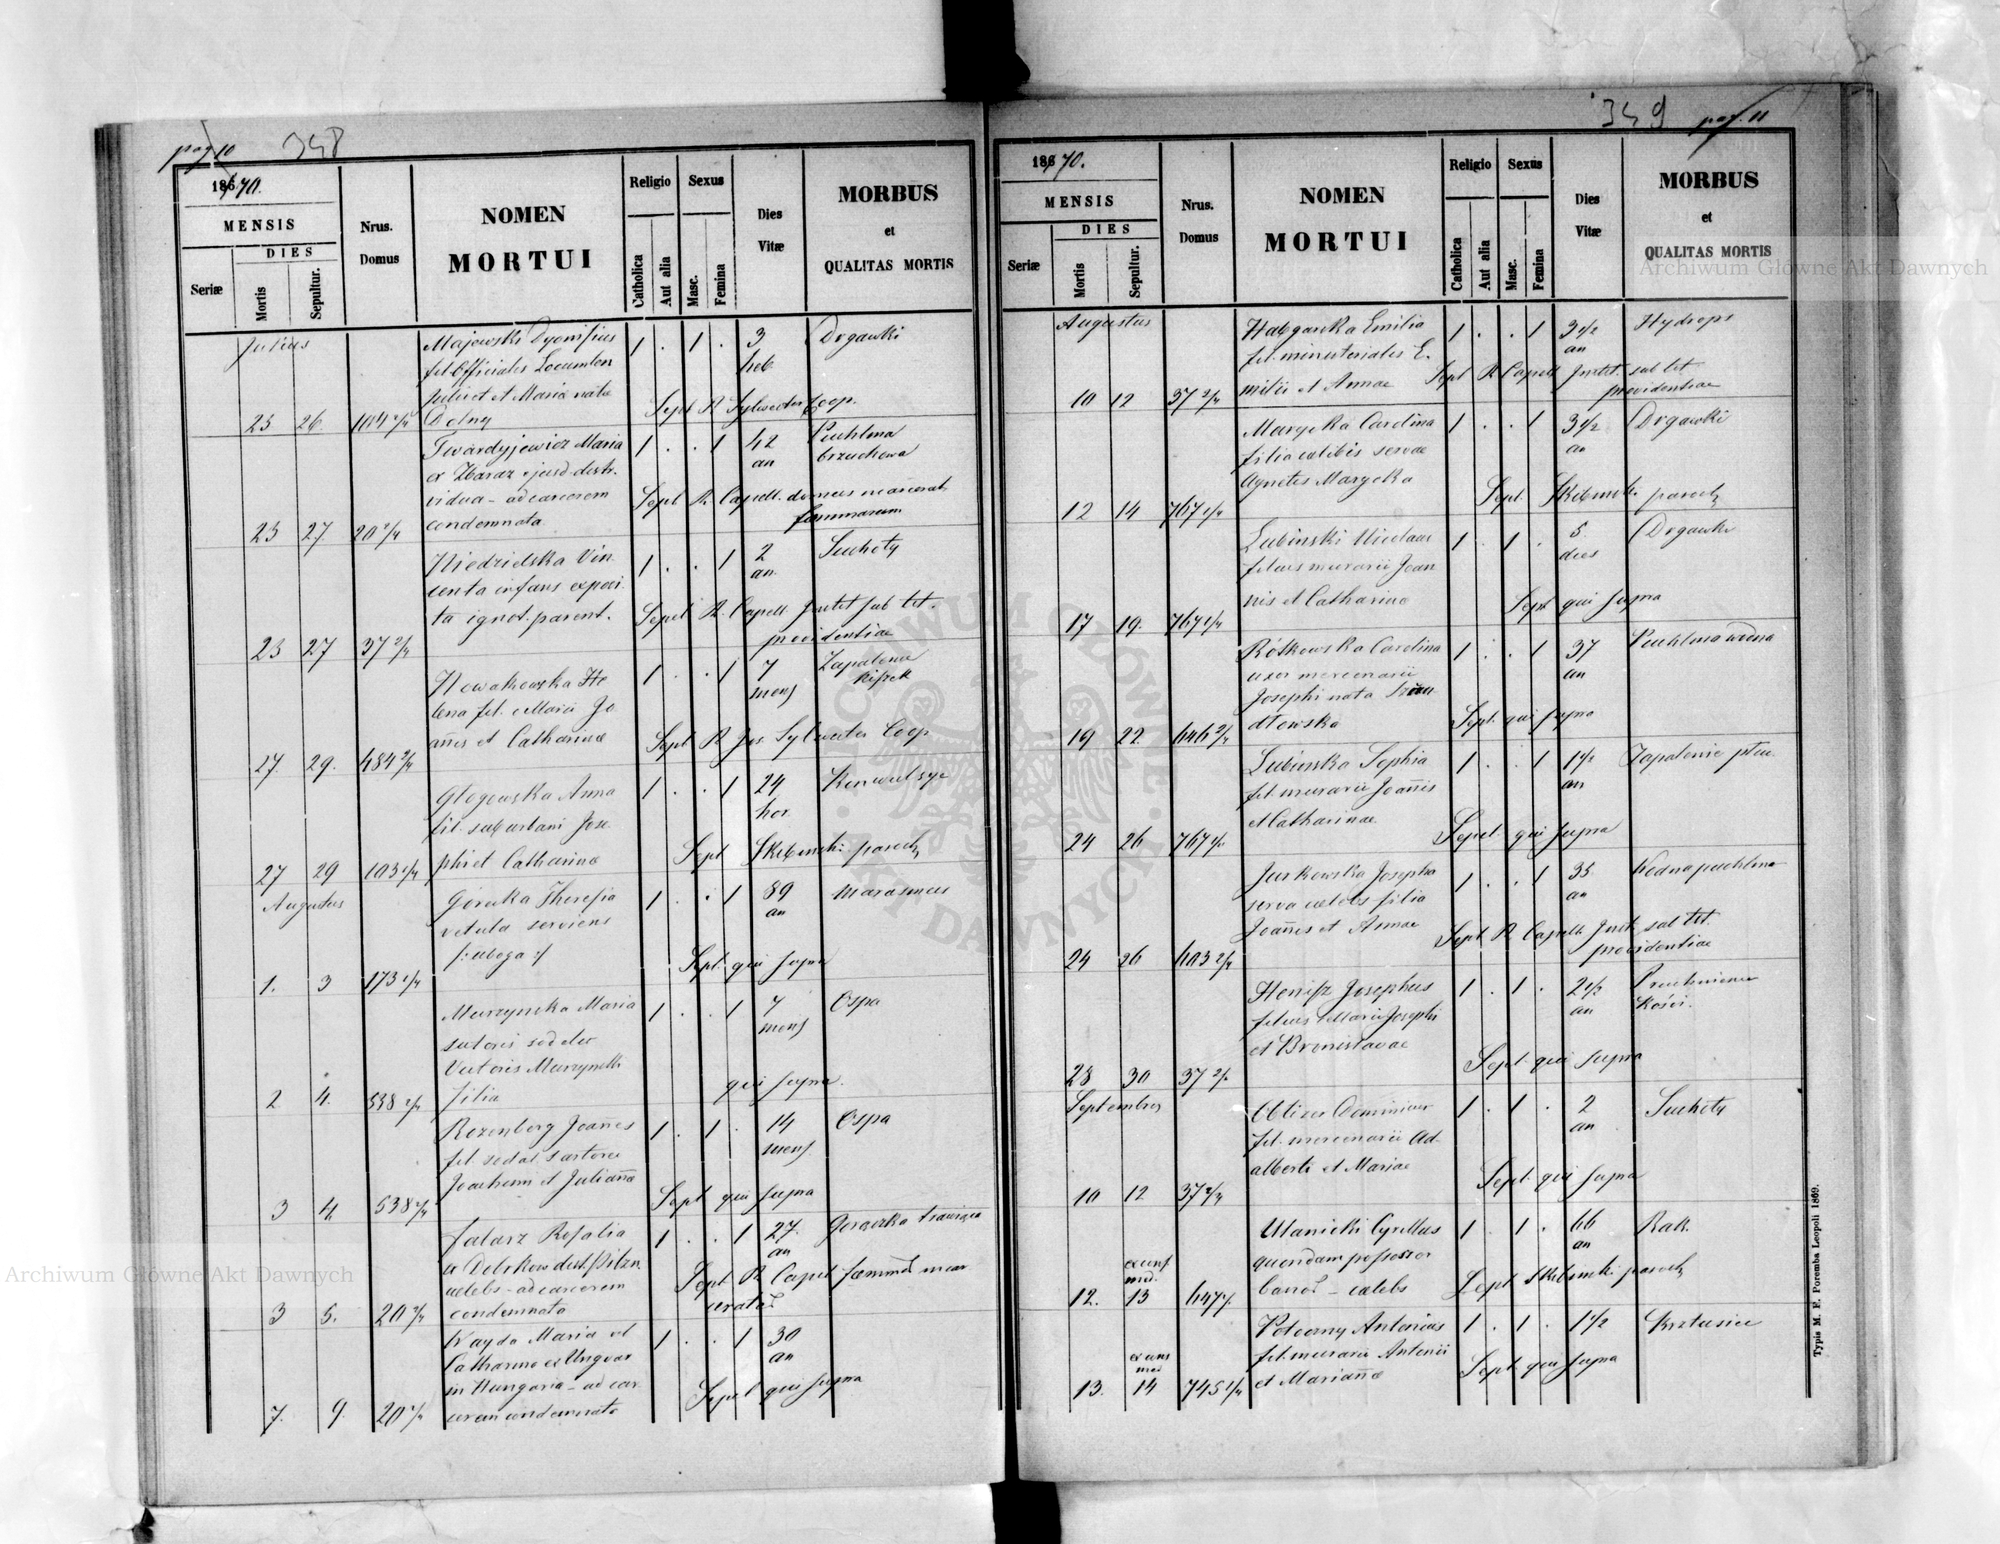 pag 10 348
1870.
MENSIS
DIES
Seriæ
Mortis
Sepultur.
Nrus.
Domus
NOMEN
MORTUI
Religio
Catholica
Aut alia
Sexus
Masc.
Femina
Dies
Vitæ
MORBUS
et
QUALITAS MORTIS
Julius
Majewski Dyonisius 1 . 1 . 3 Drgawki
fil. Officialis Locumten heb.
et Maria nata Sept R Sylwester Coop.
25 26 104 2/4 Dolny
Twardyjewicz Maria 1 . . 1 42 Puchlina
ex Zbaraz ejusd. distr. an brzuchowa
vidua - ad carcerem Sept R. Capell. domus
25 27 20 2/4 condemnata
Niedzielska Vin 1 . . 1 2 Suchoty
centa infans exposi an.
ta ignot. parent. Sepel R. Capell Instit sub tit.
23 27 37 2/4 providentiae
Nowakowska He 1 . . 1 7 Zapalenie
lena fil. Marii Jo mens kiszek
annis et Catharinae Sept R Jos Sylwester Coop
27. 29. 484 2/4
Głogowska Anna 1 . . 1 24 Konwulsye
fil. suburbani Jose hor.
phi et Catharinae Sept Skibinski paroch
27 29 103 1/4
Augustus
Gorecka Theresia 1 . . 1 89 Marasmus
vetula serviens an
/: uboga :/ Sept. qui supra
1. 3 173 1/4
Murzynska Maria 1 . . 1 7 Ospa
sutoris sodalis mens
Victoris Murzynski qui supra.
2 4. 538 2/4 filia
Rozenberg Joannes 1 . 1 . 14 Ospa
fil. sodal. sartoru mens
Joachimi et Julianna Sept qui supra
3 4 538 2/4
Falarz Rosalia 1 . . 1 27. Goraczka trawiąca
a Debrkow distr. Pilzn an
caelebs - ad carcerem Sept R Capel foemin
3 5. 20 2/4 condemnata
Kayda Maria vel 1 . . 1 30
Catharina ex Ungvar an
in Hungaria - ad car Sepel qui supra
7. 9. 20 2/4 cerem condemnata
349 pag. 11
1870.
MENSIS
DIES
Seriæ
Mortis
Sepultur.
Nrus.
Domus
NOMEN
MORTUI
Religio
Catholica
Aut alia
Sexus
Masc.
Femina
Dies
Vitæ
MORBUS
et
QUALITAS MORTIS
Augustus
Emilia 1 . . 1 3 1/2 Hydrops
fil. ministerialis E. an
milii et Annae Sept R Capell Instit sub tit
10 12 37 2/4 providentiae
Marycka Carolina 1 . . 1 3 1/2 Drgawki
filia caelibis servae an
Agnetis Marycka Sept. Skibinski paroch
12 14 767 1/4
Lubinski Nicolaus 1 . 1 . 5 Drgawki
filius murarii Joan dies
nis et Catharinae Sept qui supra
17 19. 767 1/4
Rótkowska Carolina 1 . . 1 37 Puchlina wodna
uxor mercenarii an
Josephi nata
dłowska Sept. qui supra
19 22. 646 2/4
Lubinska Sophia 1 . . 1 1 1/2 Zapalenie płuc
fil. murarii Joannis an
et Catharinae Sepel. qui supra
24 26 767 1/4
Jurkowska Josepha 1 . . 1 35 Wodna puchlina
serva caelebs filia an
Joannis et Annae Sept R Capell Instit sub tit.
24 26 603 2/4 providentiae
Henisz Josephus 1 . 1 . 2 1/2 Pruchnienie
filius Marii Josephi an Kości.
et Bronislavae Sept qui supra
28 30 37 2/4
Septembres
Oblizer Dominicus 1 . 1 . 2 Suchoty
fil. mercenarii Ad an
alberti et Mariae Sept qui supra
10 12 37 2/4
Ulanicki Cyrillus 1 . 1 . 66 Rak.
quondam possessor an
bonor - caelebs Sept Skibinski paroch
12. 13 647
Potoczny Antonius 1 . 1 . 1 1/2 Krztusiec
fil. murarii Antonii
et Mariannae Sept qui supra
13. 14 745 1/4
Typis M. F. Poremba Leopoli 1869.
Archiwum Główne Akt Dawnych
Archiwum Główne Akt Dawnych
ARCHIWUM GŁÓWNE AKT DAWNYCH